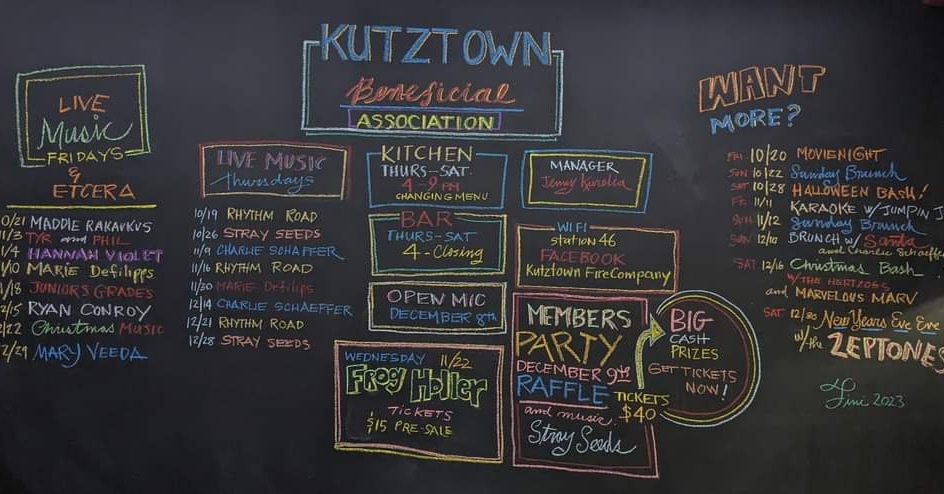 KUTZTOWN
Beneficial
ASSOCIATION
LIVE
Music
FRIDAYS
&
ETCERA
0/21 MADDIE RAKAVKUS
1/3 TYR and PHIL
1/4 HANNAH VIOLET
1/10 MARIE Defilipps
1/18 JUNIORS GRADES
2/15 RYAN CONROY
2/22 Christmas Music
2/29 MARY VEEDA
LIVE MUSIC
Thursdays
10/19 RHYTHM ROAD
10/26 STRAY SEEDS
11/9 CHARLIE SCHAFFER
11/16 RHYTHM ROAD
11/30 MARIE Defilips
12/14 CHARLIE SCHAEFFER
12/21 RHYTHM ROAD
12/28 STRAY SEEDS
KITCHEN
THURS-SAT.
4-9 PM
CHANGING MENU
BAR
THURS-SAT
4-Closing
OPEN MIC
DECEMBER 8th
WEDNESDAY 11/22
Frog Holler
TICKETS
$15 PRE-SALE
MANAGER
Jenny
WIFI
station 46
FACEBOOK
Kutztown FireCompany
MEMBERS
PARTY
DECEMBER 9th
RAFFLE TICKETS
$40
and music.
Stray Seeds
BIG
CASH
PRIZES
GET TICKETS
NOW!
WANT
MORE?
FRI 10/20 MOVIENIGHT
SUN 10/22 Sunday Brunch
SAT 10/28 HALLOWEEN BASH!
FRI 11/11 KARAOKE W/ JUMPIN J
SUN 11/12 Sunday Brunch
SUN 12/10 BRUNCH W/ Santa
and Charlie Schaeffe
SAT 12/16 Christmas Bash
W/THE HERTZOGS
and MARVELOUS MARV
SAT 12/30 New Years Eve Eve
w/the ZEPTONES
2023